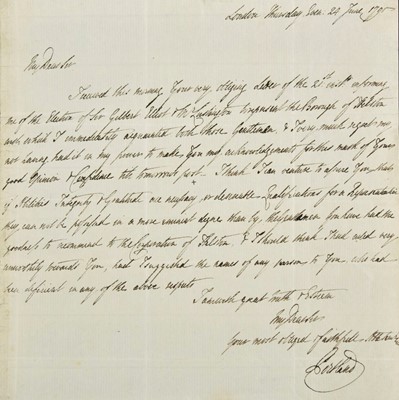 London Thursday Even. 24 June 1790
My Dear Sir
I received this morning your very obliging Letter of the 21st inst. informing
me of the Election of Sir Gilbert Elliot & Mr Lushington to represent the Borough of Helston
with which I immediately acquainted both those Gentlemen, & I very much regret my
not having had it in my power to make you my acknowledgements for this mark of your
good Opinion & confidence till tomorrow's post. I think I can venture to assure you that
if Abilities Integrity & Gratitude are necessary or desireable Qualifications for a Representative
they can not be possessed in a more eminent degree than by the Gentlemen you have had the
goodness to recommend to the Corporation of Helston, & I should think I had used very
unworthily towards You, had I suggested the names of any person to You who had
been deficient in any of the above respects
I am with great truth & Esteem
My Dear Sir
Your most obliged & faithfull
Portland